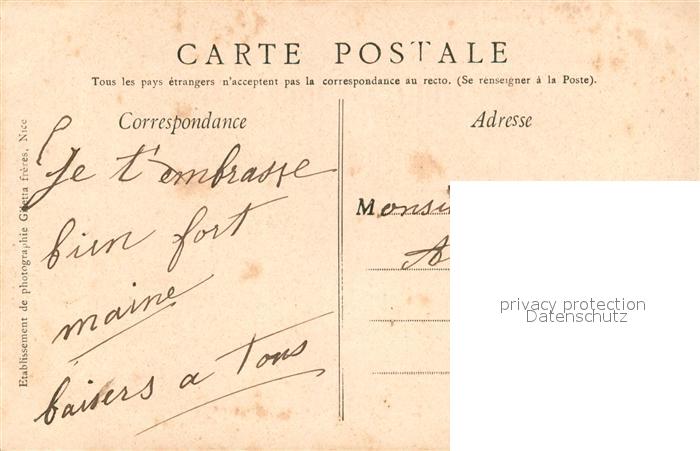 CARTE POSTALE
Tous les pays étrangers n'acceptent pas la correspondance au recto. (Se renseigner à la Poste).
Correspondance
Adresse
Etablissement de photographie Giletta frères, Nice
Je t'embrasse
bien fort
maine
baisers a Tous
Monsi
A
privacy protection
Datenschutz